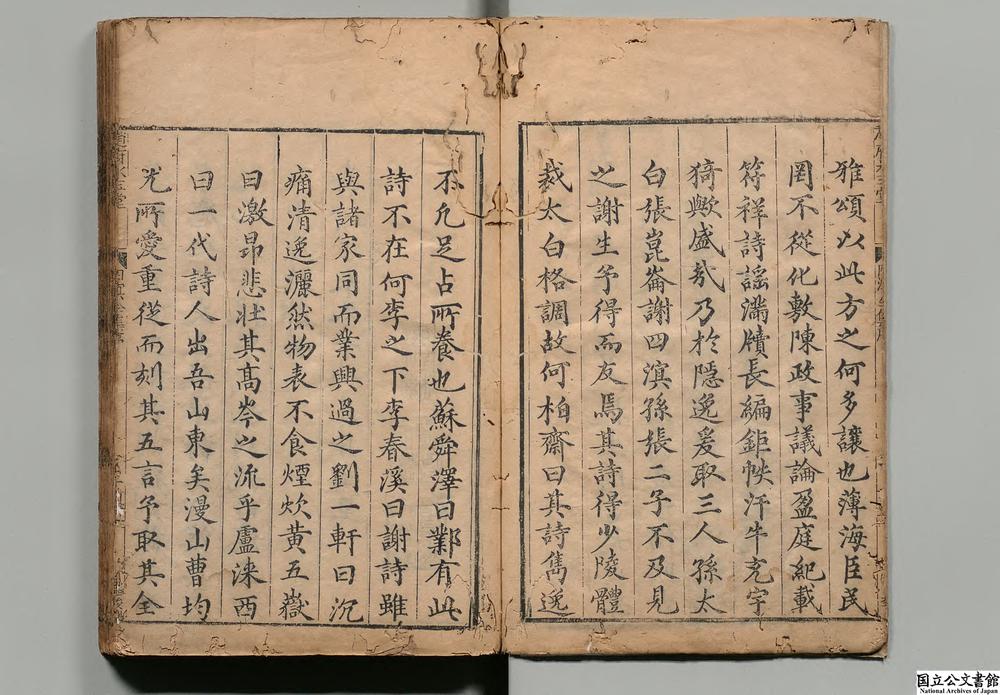 雅頌以此方之何多讓也薄海臣民
罔不從化敷陳政事議論盈庭紀載
符祥詩謠滿牘長編鉅帙汗牛充宇
猗歟盛哉乃於隱逸爰取三人孫太
白張崑崙謝四溟孫張二子不及見
之謝生予得而友焉其詩得少陵體
裁太白格調故何柏齋曰其詩雋逸
不凡足占所養也蘇舜澤曰鄴有此
詩不在何李之下李春溪曰謝詩雖
與諸家同而業興過之劉一軒曰沉
痛清逸灑然物表不食煙炊黃五嶽
曰激昂悲壯其高岑之流乎盧淶西
曰一代詩人出吾山東矣漫山曹均
尤所愛重從而刻其五言予取其全
国立公文書館
National Archives of Japan